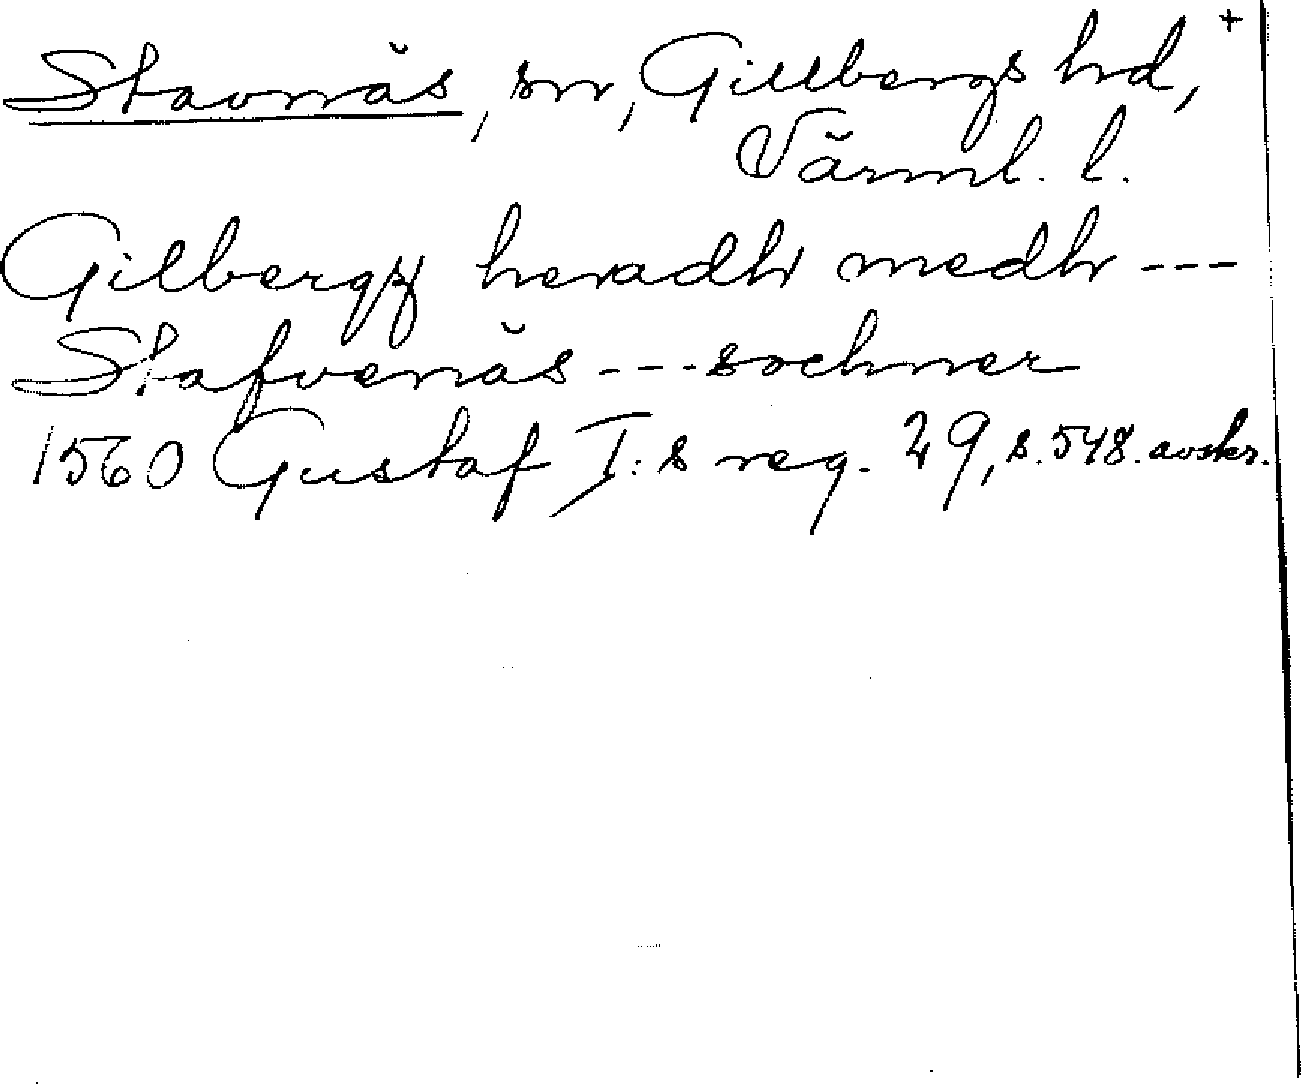 Stavnäs, sn, Gillbergs hd, +
Värml. l.
Gilbergz heradh medh ---
Stafvenäs --- sochner
1560 Gustaf I:s reg. 29, s. 548. avskr.